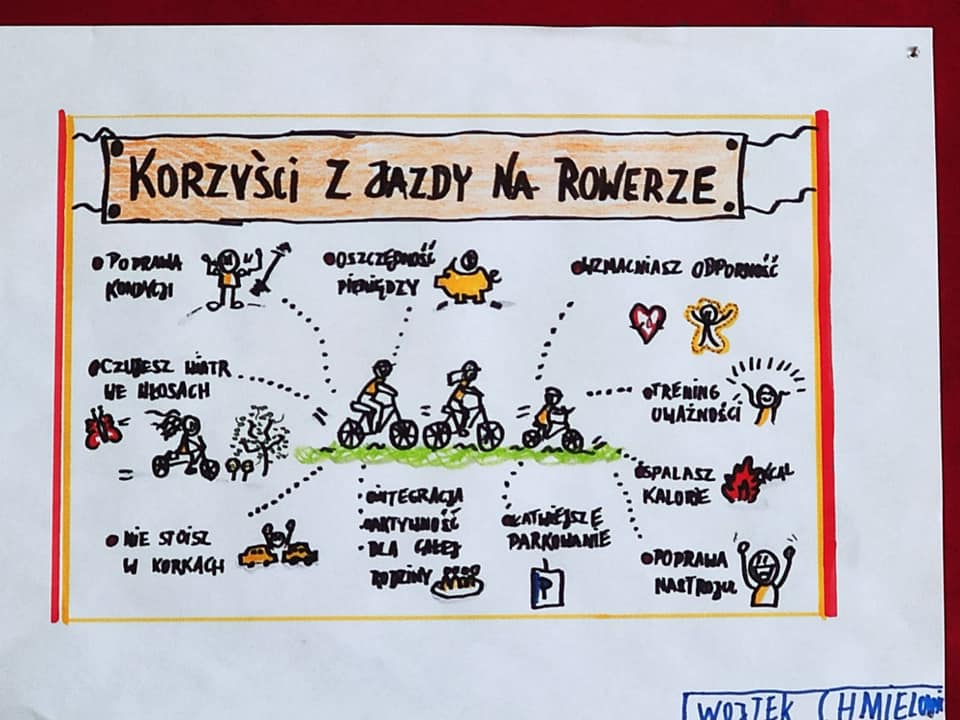 KORZYŚCI Z JAZDY NA ROWERZE
POPRAWA
KONDYCJI
OSZCZĘDNOŚĆ
PIENIĘDZY
WZMACNIASZ ODPORNOŚĆ
CZUJESZ WIATR
WE WŁOSACH
TRENING
UWAŻNOŚCI
SPALASZ
KALORIE
KCAL
NIE STOISZ
W KORKACH
INTEGRACJA
AKTYWNOŚĆ
DLA CAŁEJ
RODZINY
ŁATWIEJSZE
PARKOWANIE
P
POPRAWA
NASTROJU
WOJTEK